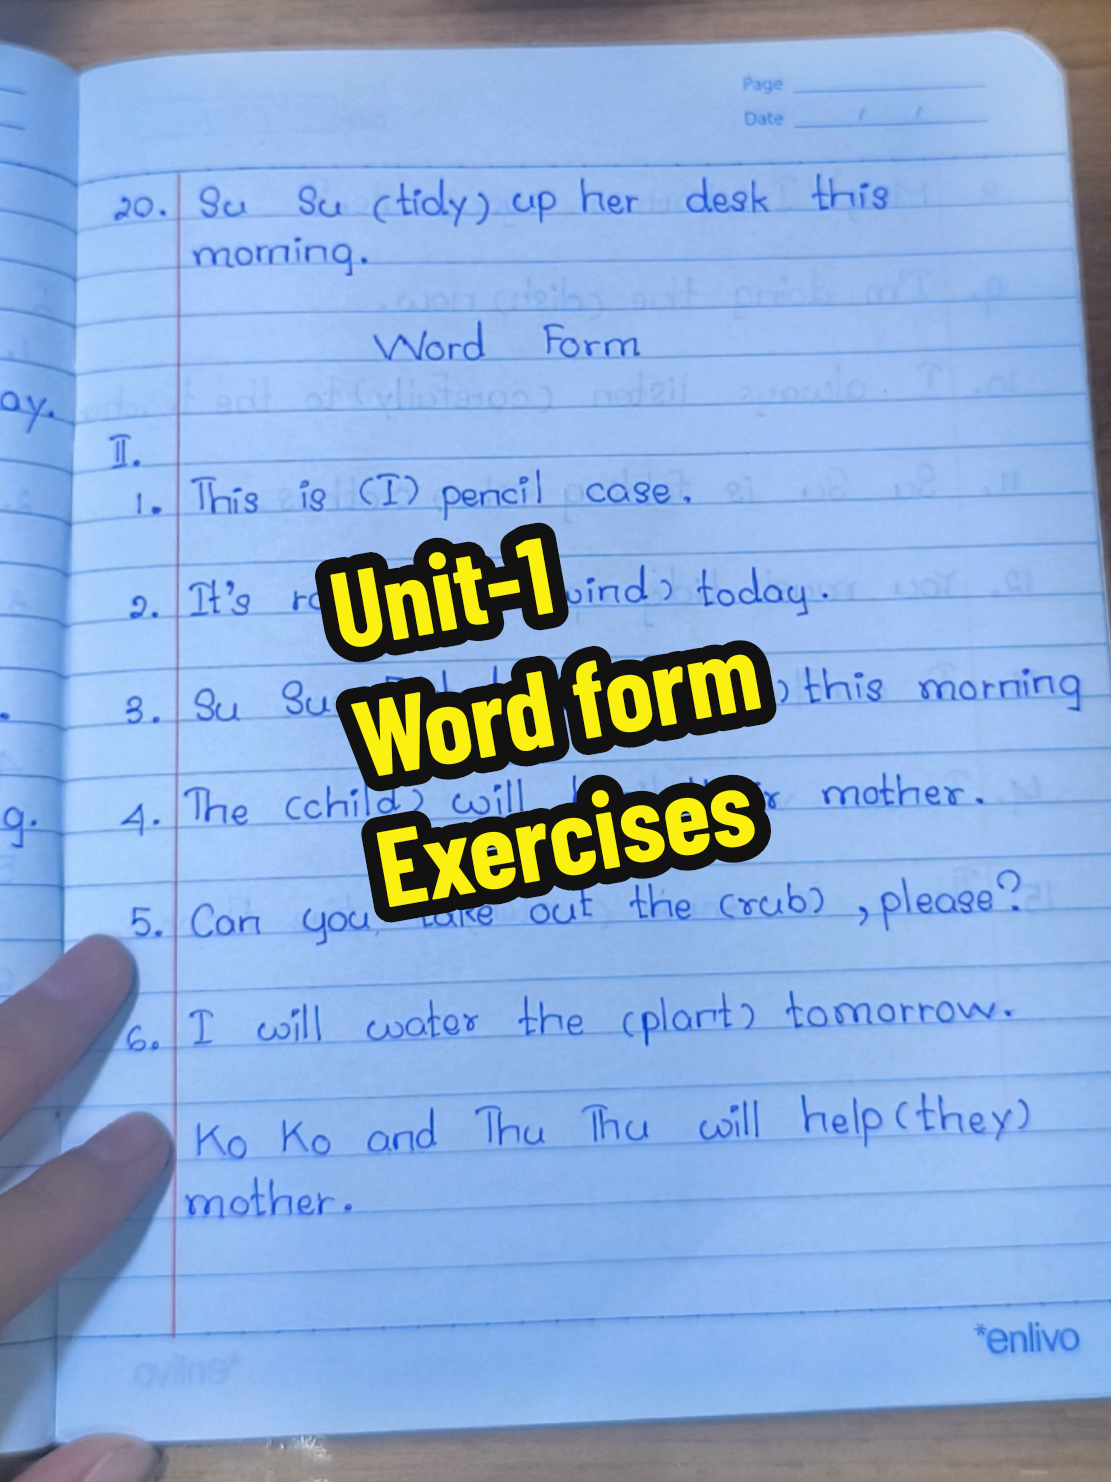 Page
Date / /
20. Su Su (tidy) up her desk this
morning.
Word Form
II.
1. This is (I) pencil case.
2. It's wind) today.
Unit-1
3. Su Su ) this morning
Word form
4. The (child) will mother.
Exercises
5. Can you take out the (rub), please?
6. I will water the (plant) tomorrow.
Ko Ko and Thu Thu will help (they)
mother.
*enlivo
ay.
g.